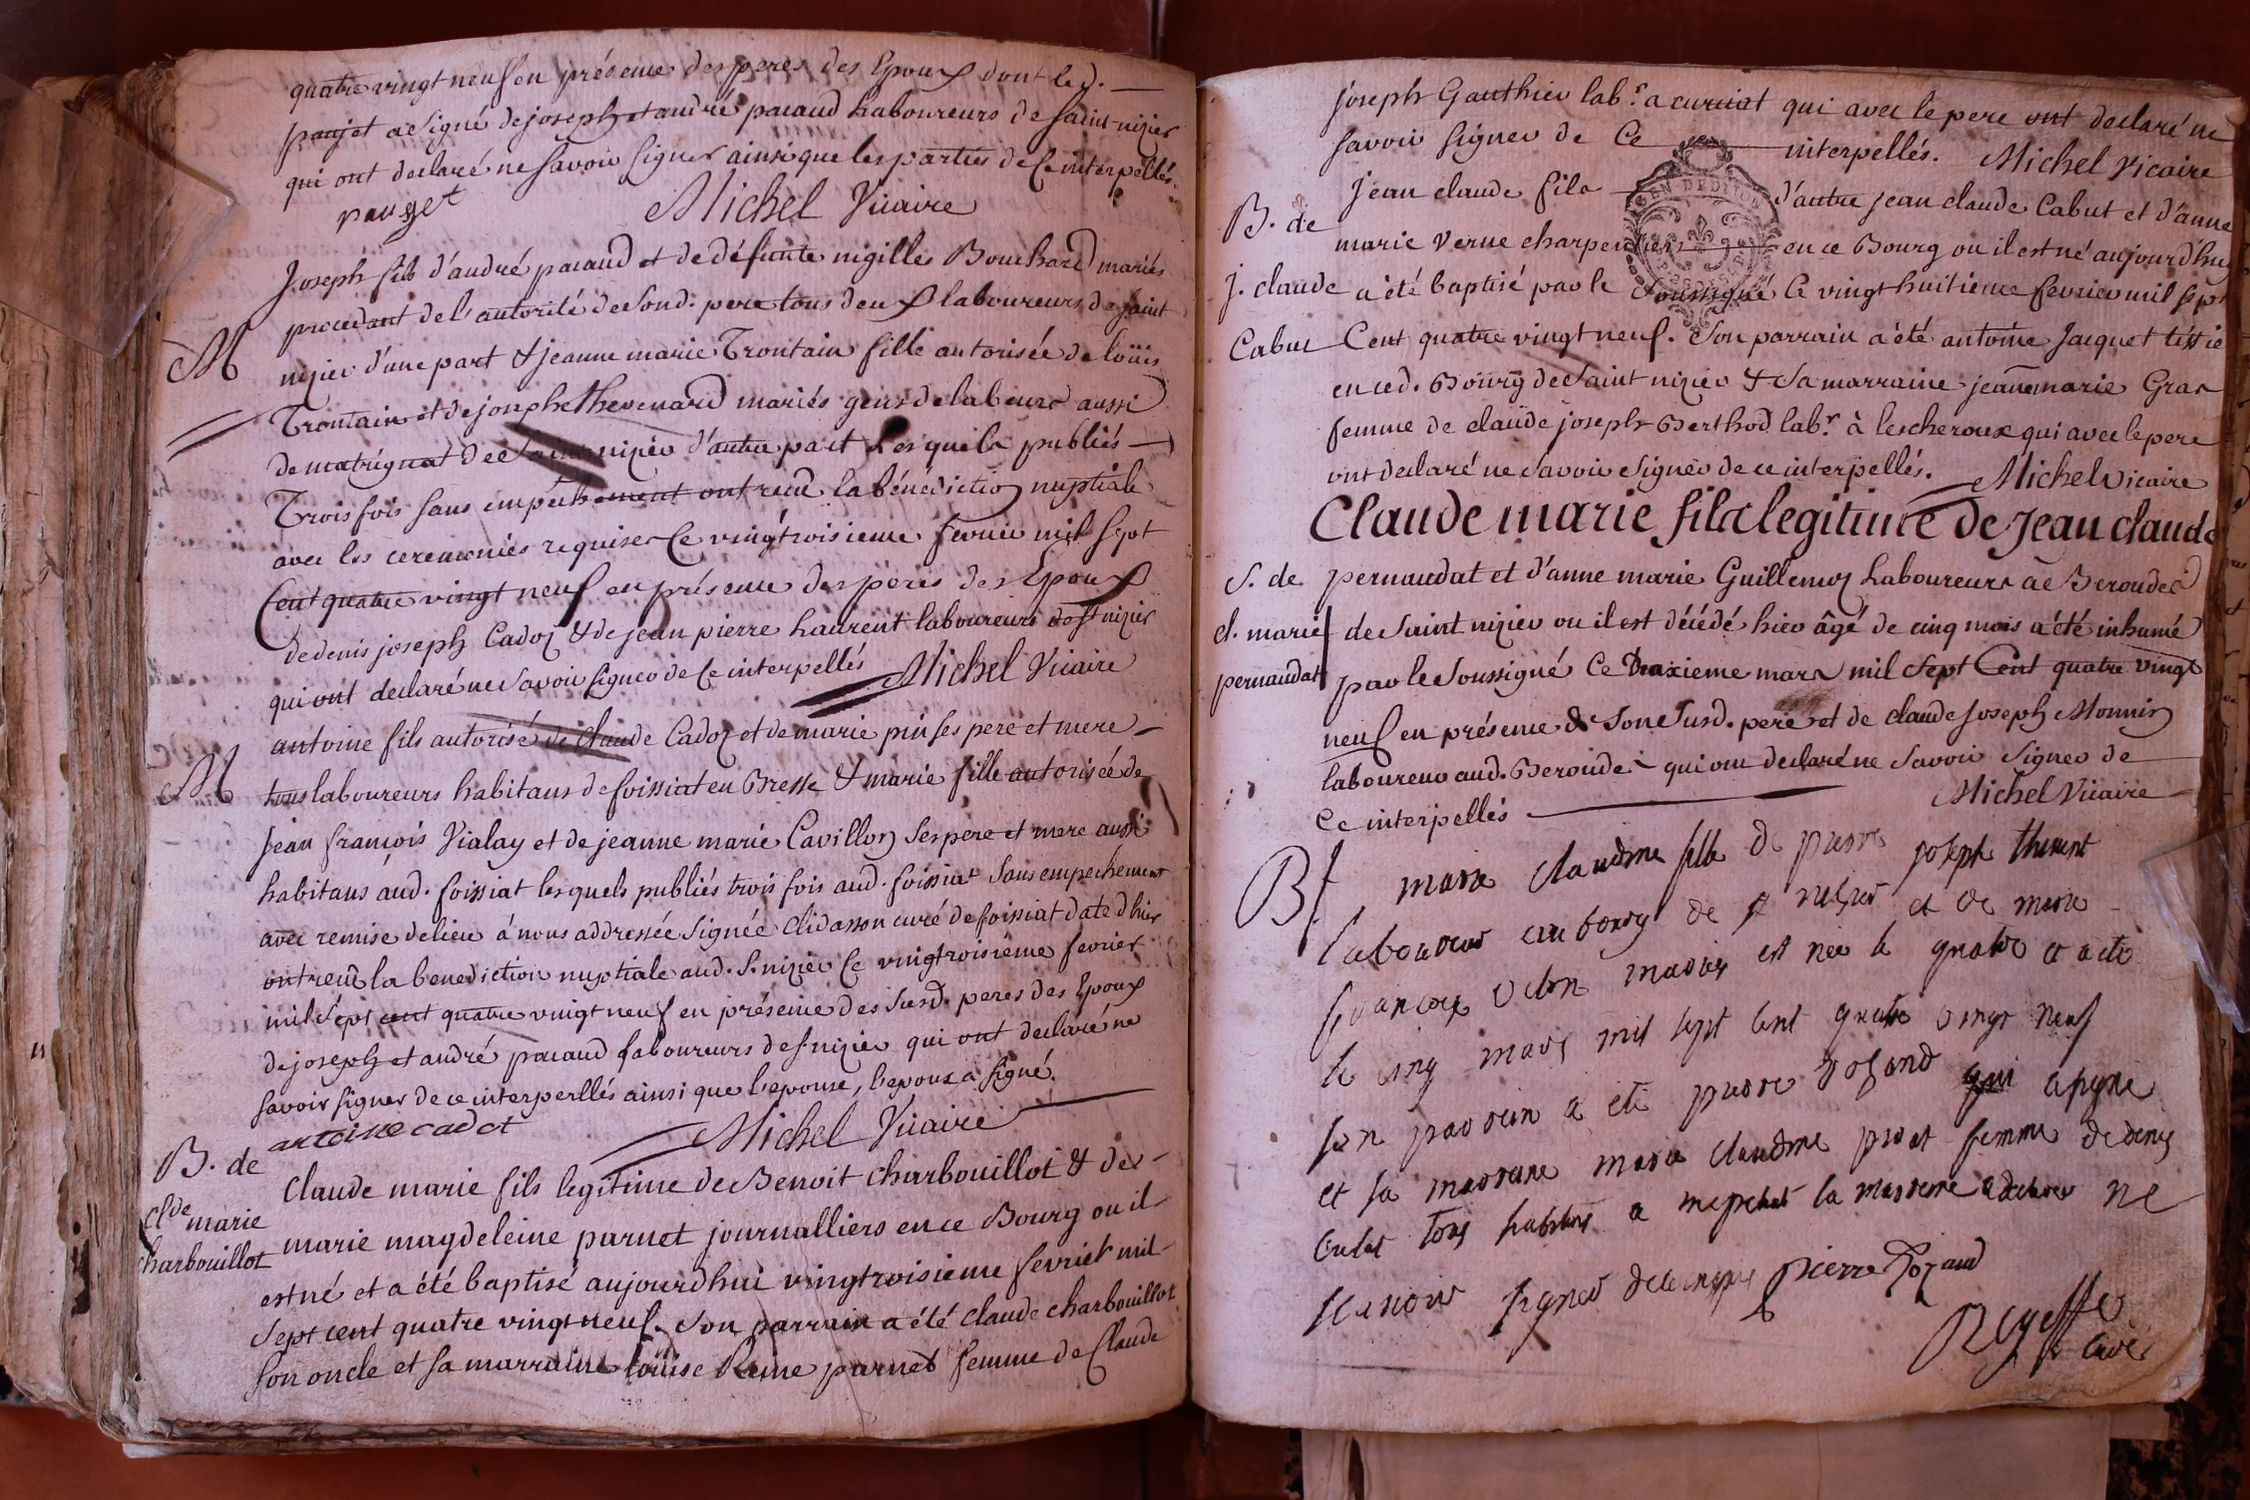 quatre vingt neuf en présence des peres des Epoux dont led.
paujet a signé de joseph et andré pacaud laboureurs de saint nizier
qui ont declaré ne savoir signer ainsi que les parties de ce interpellés.
pauget Michel Vicaire
Joseph fils d'andré pacaud et de défunte nigilles Bouchard mariés
procedant de l'autorité de sond. pere tous deux laboureurs de saint
M nizier d'une part & jeanne marie Trontain fille autorisée de loüis
Trontain et de josephe thevenard mariés gens de labeurs aussi
de matrignat de saint nizier d'autre part Lesquels publiés
Trois fois sans empéchement ont recu la bénédiction nuptiale
avec les ceremonies requises Ce vingtroisieme fevrier mil sept
Cent quatre vingt neuf en présence des peres des Epoux
de denis joseph Cadoz & de jean pierre laurent laboureurs de st nizier
qui ont declaré ne savoir signer de Ce interpellés Michel Vicaire
antoine fils autorisé de claude Cadoz et de marie pin ses pere et mere
M tous laboureurs habitans de foissiat en Bresse & marie fille autorisée de
Jean françois Vialay et de jeanne marie Cavillon ses pere et mere aussi
habitans aud. foissiat lesquels publiés trois fois aud. foissiat sans empechement
avec remise de lieu á nous addressée signée Clidasson curé de foissiat date d'hier
ont recu la benediction nuptiale aud. S. nizier Ce vingtroisieme fevrier
mil sept cent quatre vingt neuf en présence des susd. peres des Epoux
de joseph et andré pacaud laboureurs de s. nizier qui ont declaré ne
savoir signer de ce interpellés ainsi que l'epouse, l'epoux a signé.
antoine cadot Michel Vicaire
B. de Cl.de marie charbouillot
Claude marie fils legitime de Benoit charbouillot & de
marie magdeleine parnet journalliers en ce Bourg ou il
est né et a été baptisé aujourdhui vingtroisieme fevrier mil
sept cent quatre vingt neuf. son parrain a été claude charbouillot
son oncle et sa marraine loüise Reine parnet femme de Claude
joseph Gauthier lab.r a curciat qui avec le pere ont declaré ne
savoir signer de Ce interpellés. Michel Vicaire
B. de j. claude Cabut
jean claude fils d'autre jean claude Cabut et d'anne
marie Verne charpentiers en ce Bourg ou il est né aujourdhui
a été baptisé par le soussigné Ce vingt huitieme fevrier mil sept
Cent quatre vingt neuf. son parrain a été antoine Jacquet tissie
en ced. Bourg de saint nizier & sa marraine jeanne marie Gras
femme de claude joseph Berthod lab.r à lescheroux qui avec le pere
ont declaré ne savoir signer de ce interpellés. Michel vicaire
Claude marie fils legitime de Jean claude
S. de cl. marie pernaudat
pernaudat et d'anne marie Guillemoz laboureurs a Beroudes
de saint nizier ou il est décédé hier âgé de cinq mois a été inhumé
par le soussigné Ce deuxieme mars mil sept Cent quatre vingt
neuf en présence de son susd. pere et de claude joseph Monnin
laboureur aud. Beroude qui ont declaré ne savoir signer de
Ce interpellés Michel Vicaire
B marie claudine fille de pierre joseph
laboureur au bourg de st nizier et de marie
francoise mariés est née le quatre a été
le cinq mars mil sept cent quatre vingt neuf
son parrain a eté pierre Jozand qui a signé
et sa marraine marie claudine femme de denis
tous habitans la marraine a declaré ne
scavoir signer de ce Pierre Jozand
curé